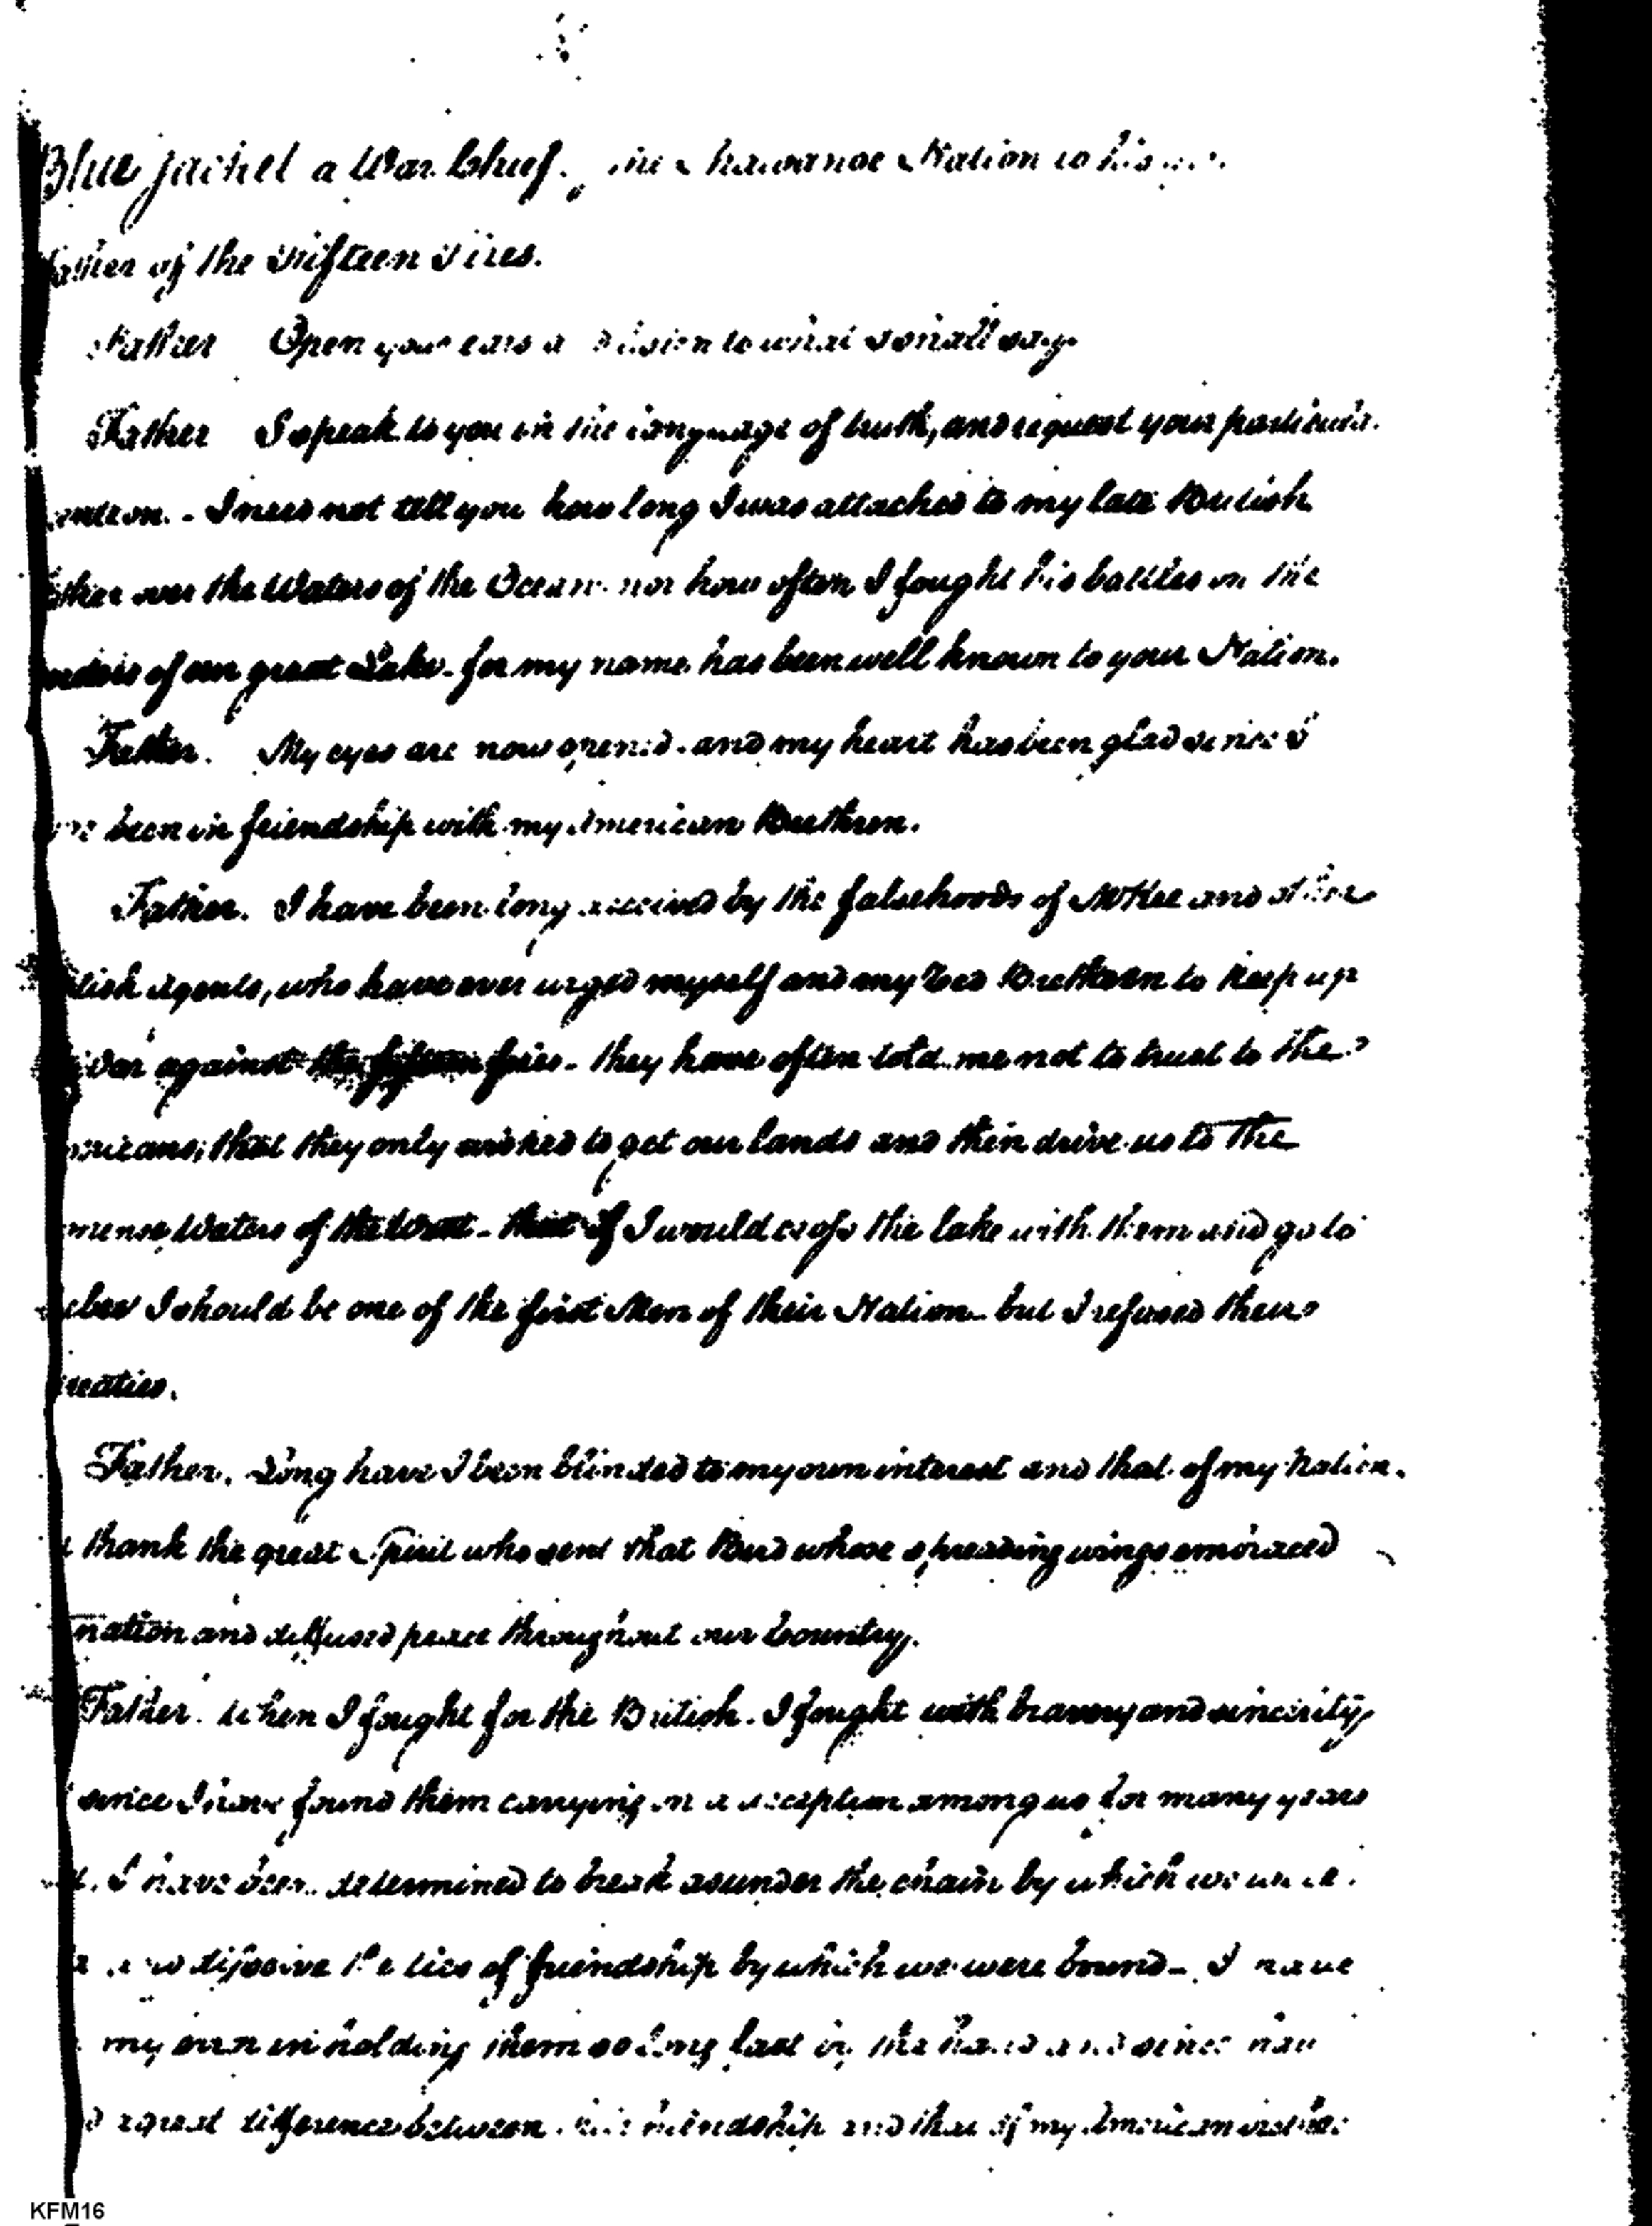 Blue Jacket a War Chief. Nation to his
of the Fifteen Fires.
Father Open your ears & listen to what I shall say
Father I speak to you in the language of truth, and request your particular
I need not tell you how long I was attached to my late British
over the Waters of the Ocean nor how often I fought his battles on the
of our great Lake. for my name has been well known to your Nation.
Father. My eyes are now opened. and my heart has been glad since I
been in friendship with my American Brethren.
Father. I have been long deceived by the falsehoods of McKee and other
Agents, who have ever urged myself and my Red Brethren to keep up
War against the fifteen fires. they have often told me not to trust to the
that they only wished to get our lands and then drive us to the
Waters of the West. that if I would cross the lake with them and go to
I should be one of the first Men of their Nation. but I refused their
Father. Long have I been blinded to my own interest and that of my Nation.
I thank the great Spirit who sent that Bird whose spreading wings embraced
nation and diffused peace throughout our Country.
Father. When I fought for the British. I fought with bravery and sincerity
since I have found them carrying on a deception among us for many years
I have been determined to break asunder the chain by which we were
and dissolve the ties of friendship by which we were bound. I have
my own in holding them so long fast by the hand and since
a great difference between friendship and that of my American
KFM16